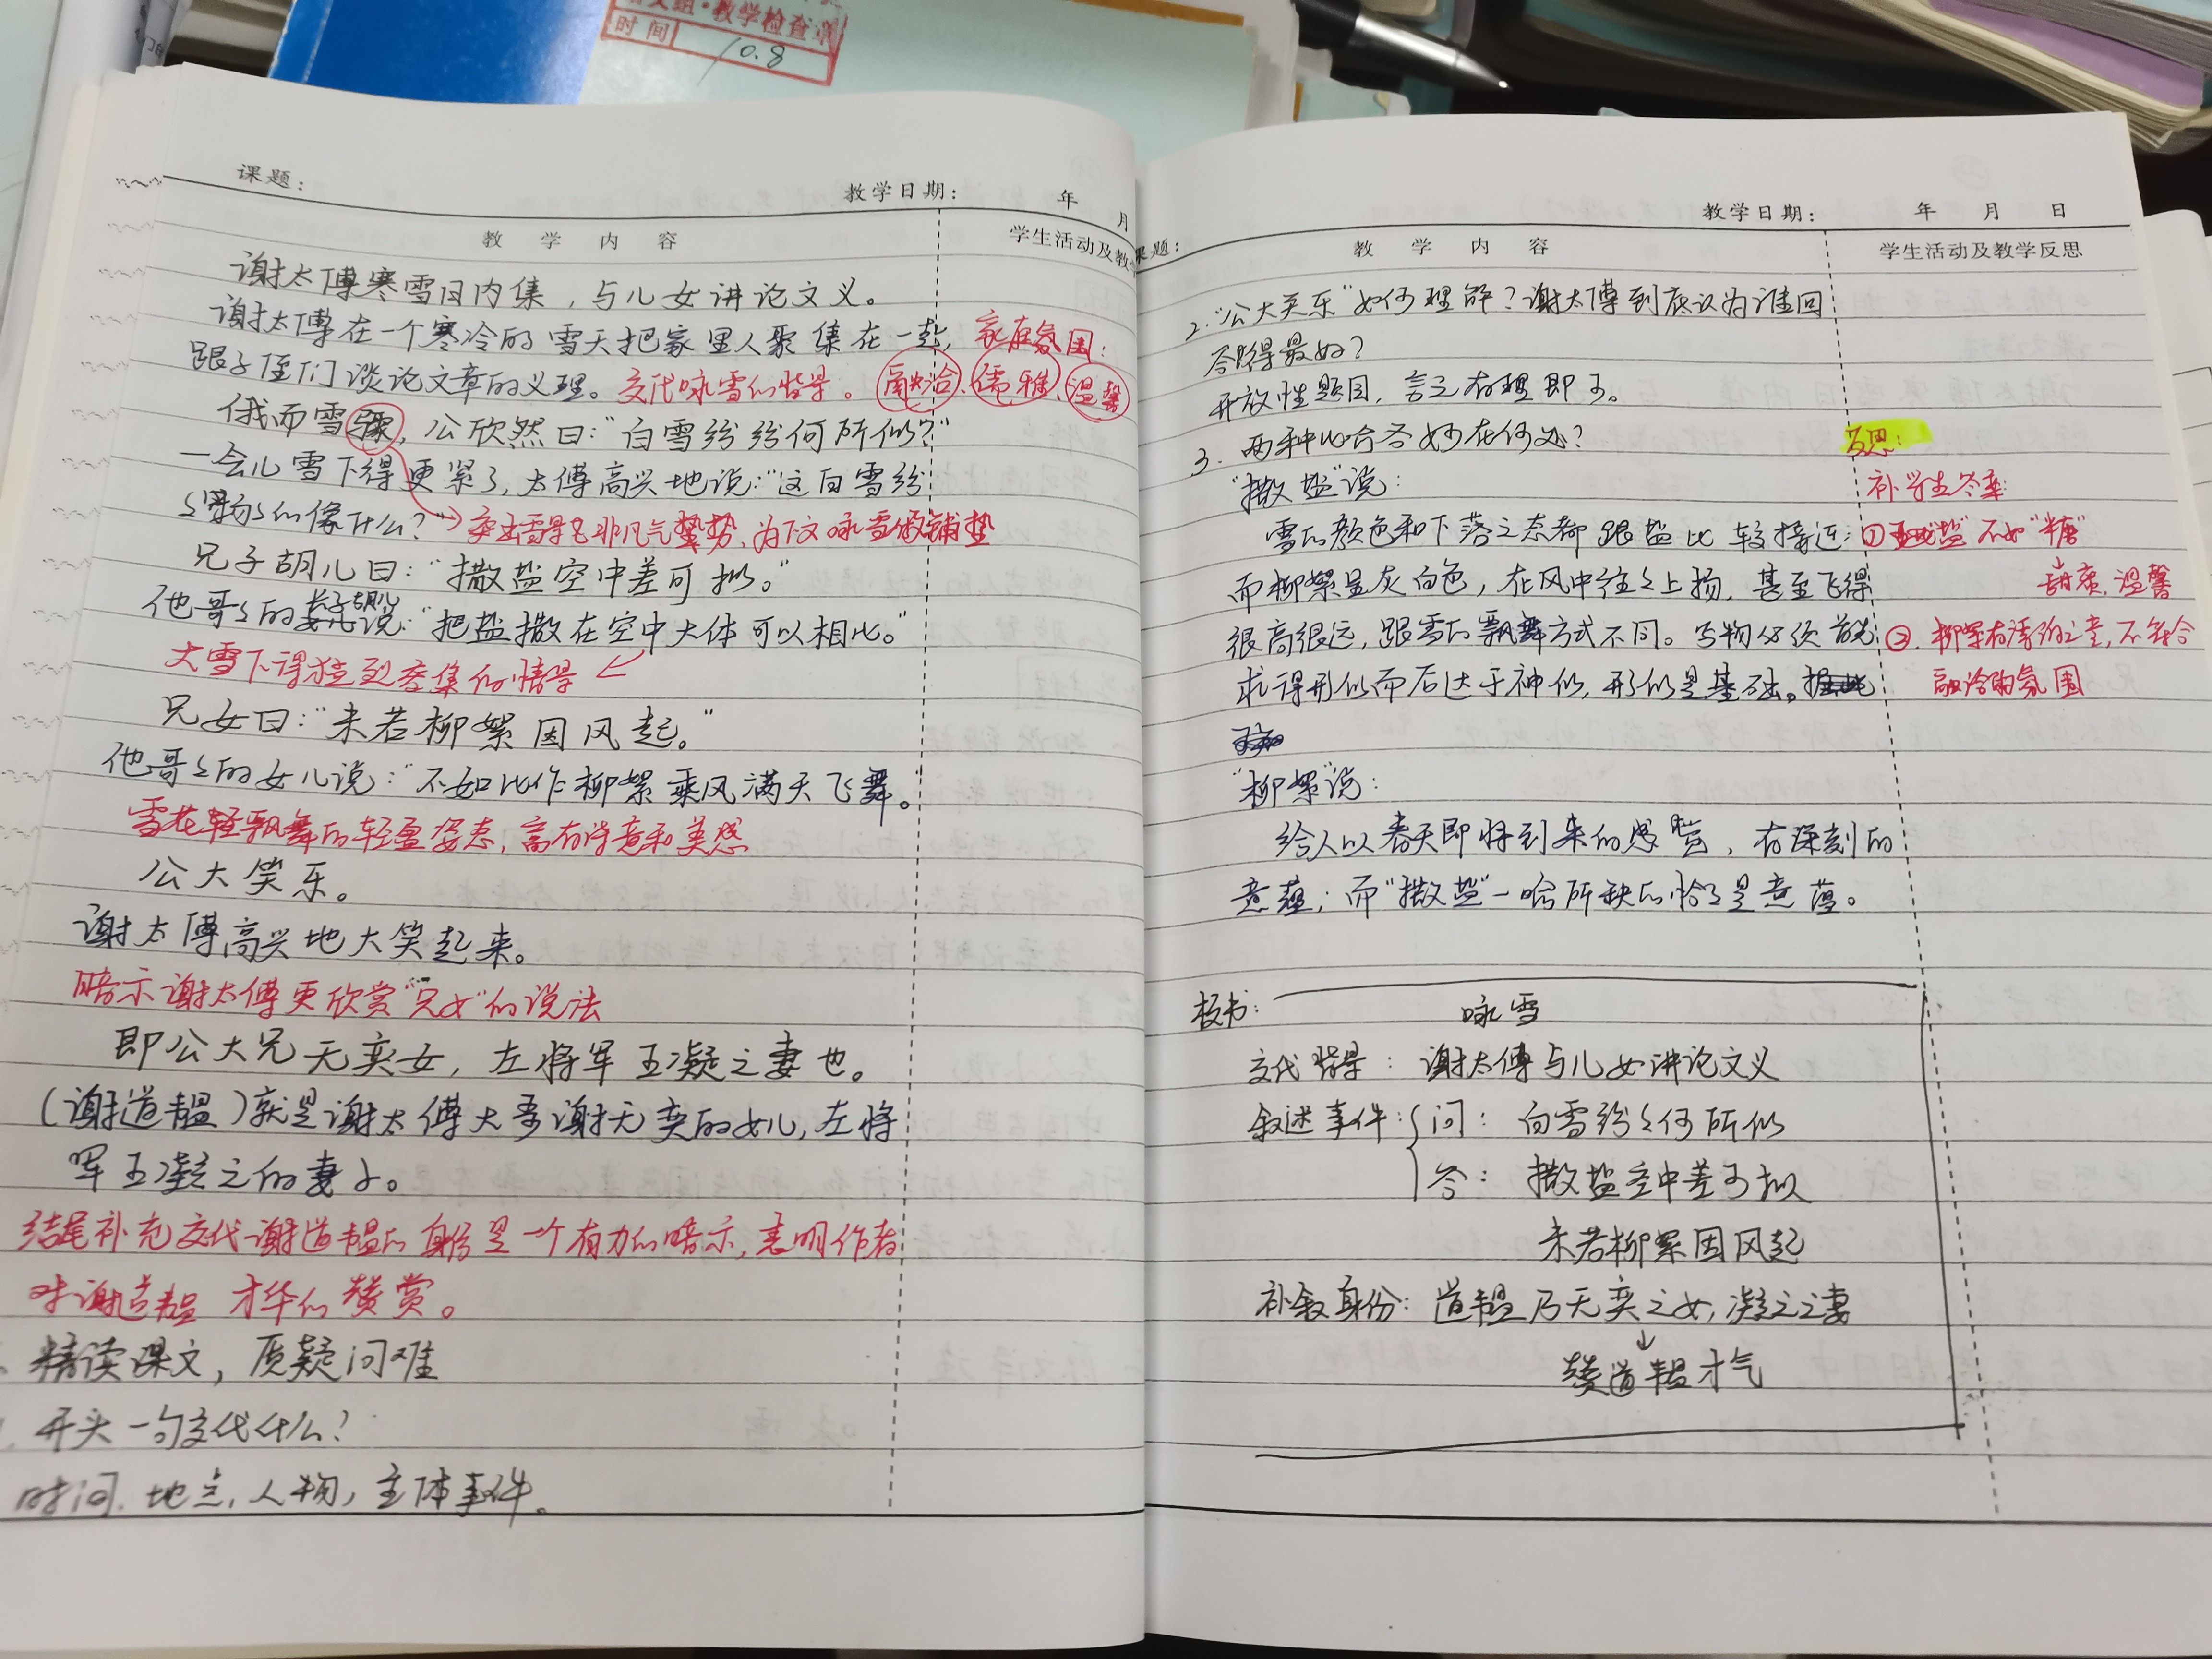 教学检查章
时间 10.8
课题：
教学日期： 年 月
教 学 内 容
学生活动及教
谢太傅寒雪日内集，与儿女讲论文义。
谢太傅在一个寒冷的雪天把家里人聚集在一起，
家庭氛围：
跟子侄们谈论文章的义理。交代咏雪的背景。
融洽、儒雅、温馨
俄而雪骤，公欣然曰：“白雪纷纷何所似？”
一会儿雪下得更紧了，太傅高兴地说：“这白雪纷
纷扬扬的像什么？”
突出雪景非凡气势，为下文咏雪做铺垫
兄子胡儿曰：“撒盐空中差可拟。”
长子胡儿
他哥哥的说：“把盐撒在空中大体可以相比。”
大雪下得狂烈密集的情景
兄女曰：“未若柳絮因风起。”
他哥哥的女儿说：“不如比作柳絮乘风满天飞舞。”
雪花飘舞的轻盈姿态，富有诗意和美感
公大笑乐。
谢太傅高兴地大笑起来。
暗示谢太傅更欣赏“兄女”的说法
即公大兄无奕女，左将军王凝之妻也。
（谢道韫）就是谢太傅大哥谢无奕的女儿，左将
军王凝之的妻子。
结尾补充交代谢道韫的身份是一个有力的暗示，表明作者
对谢道韫才华的赞赏。
精读课文，质疑问难
开头一句交代什么？
时间、地点，人物，主体事件。
课题：
教学日期： 年 月 日
教 学 内 容
学生活动及教学反思
2.“公大笑乐”如何理解？谢太傅到底认为谁回
答得最好？
开放性题目，言之有理即可。
3. 两种比喻各妙在何处？
反思：
“撒盐”说：
补学生答案：
雪的颜色和下落之态都跟盐比较接近；
①“盐”不如“糖”
而柳絮呈灰白色，在风中往往上扬，甚至飞得
甜蜜，温馨
很高很远，跟雪的飘舞方式不同。写物必须首先
②.柳絮有漂泊之意，不符合
求得形似而后达于神似，形似是基础。
融洽的氛围
“柳絮”说：
给人以春天即将到来的感觉，有深刻的
意蕴；而“撒盐”一喻所缺的恰恰是意蕴。
板书：
咏雪
交代背景：谢太傅与儿女讲论文义
叙述事件：问：白雪纷纷何所似
答：撒盐空中差可拟
未若柳絮因风起
补叙身份：道韫乃无奕之女，凝之之妻
↓
赞道韫才气